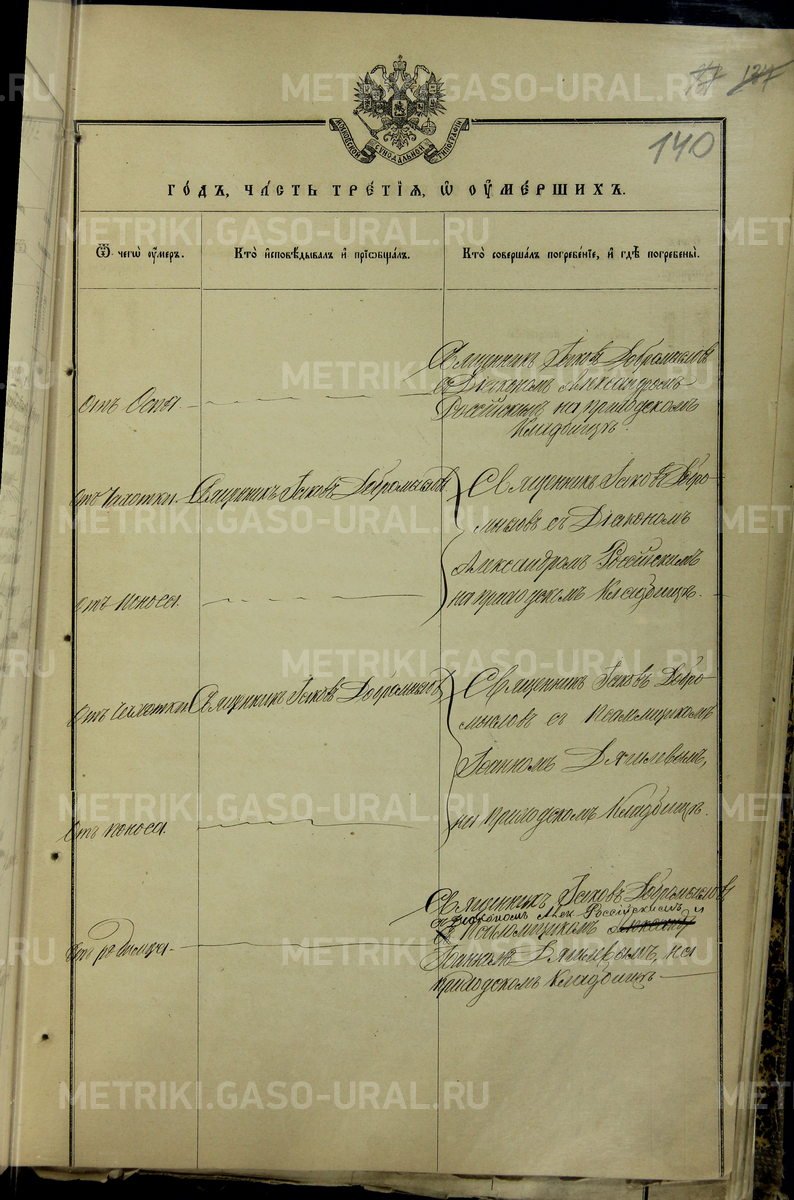 137 134
140
МОСКОВСКОЙ СѴНОДАЛЬНОЙ ТИПОГРАФІИ
ГО́ДЪ, ЧА́СТЬ ТРЕ́ТІѦ, Ѡ ОУ҆МЕ́РШИХЪ.
Ѿ чегѡ̀ оу҆́меръ.
Кто̀ и҆сповѣ́дывалъ и҆ прїѡбща́лъ.
Кто̀ соверша́лъ погребе́нїе, и҆ гдѣ̀ погребены̀.
Отъ Оспы
Священникъ Іаковъ Добромысловъ
съ Діакономъ Александромъ
Россійскимъ на приходскомъ
Кладбищѣ.
Отъ Чахотки.
Священникъ Іаковъ Добромысловъ
Священникъ Іаковъ Добро-
мысловъ съ Діакономъ
Александромъ Россійскимъ
на приходскомъ Кладбищѣ.
Отъ поноса.
Отъ Чахотки
Священникъ Іаковъ Добромысловъ
Священникъ Іаковъ Добро-
мысловъ съ Псаломщикомъ
Іоанномъ Дягилевымъ,
на приходскомъ Кладбищѣ.
Отъ поноса.
Священникъ Іаковъ Добромысловъ
съ діакономъ Алек. Россійскимъ и
Псаломщикомъ
Іоанномъ Дягилевымъ, на
приходскомъ Кладбищѣ
METRIKI.GASO-URAL.RU